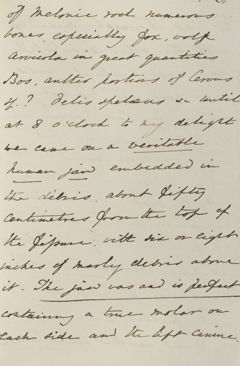 of Melonic rock numerous
bones, especially fox, wolf
Arvicola in great quantities
Bos, antler portions of Cervus
sp.? Felis spelaeus &c until
at 8 o'clock to my delight
we came on a veritable
human jaw embedded in
the debris, about fifty
centimetres from the top of
the fissure, with six or eight
inches of marly debris above
it. The jaw was and is perfect
containing a true molar on
each side and the left canine.